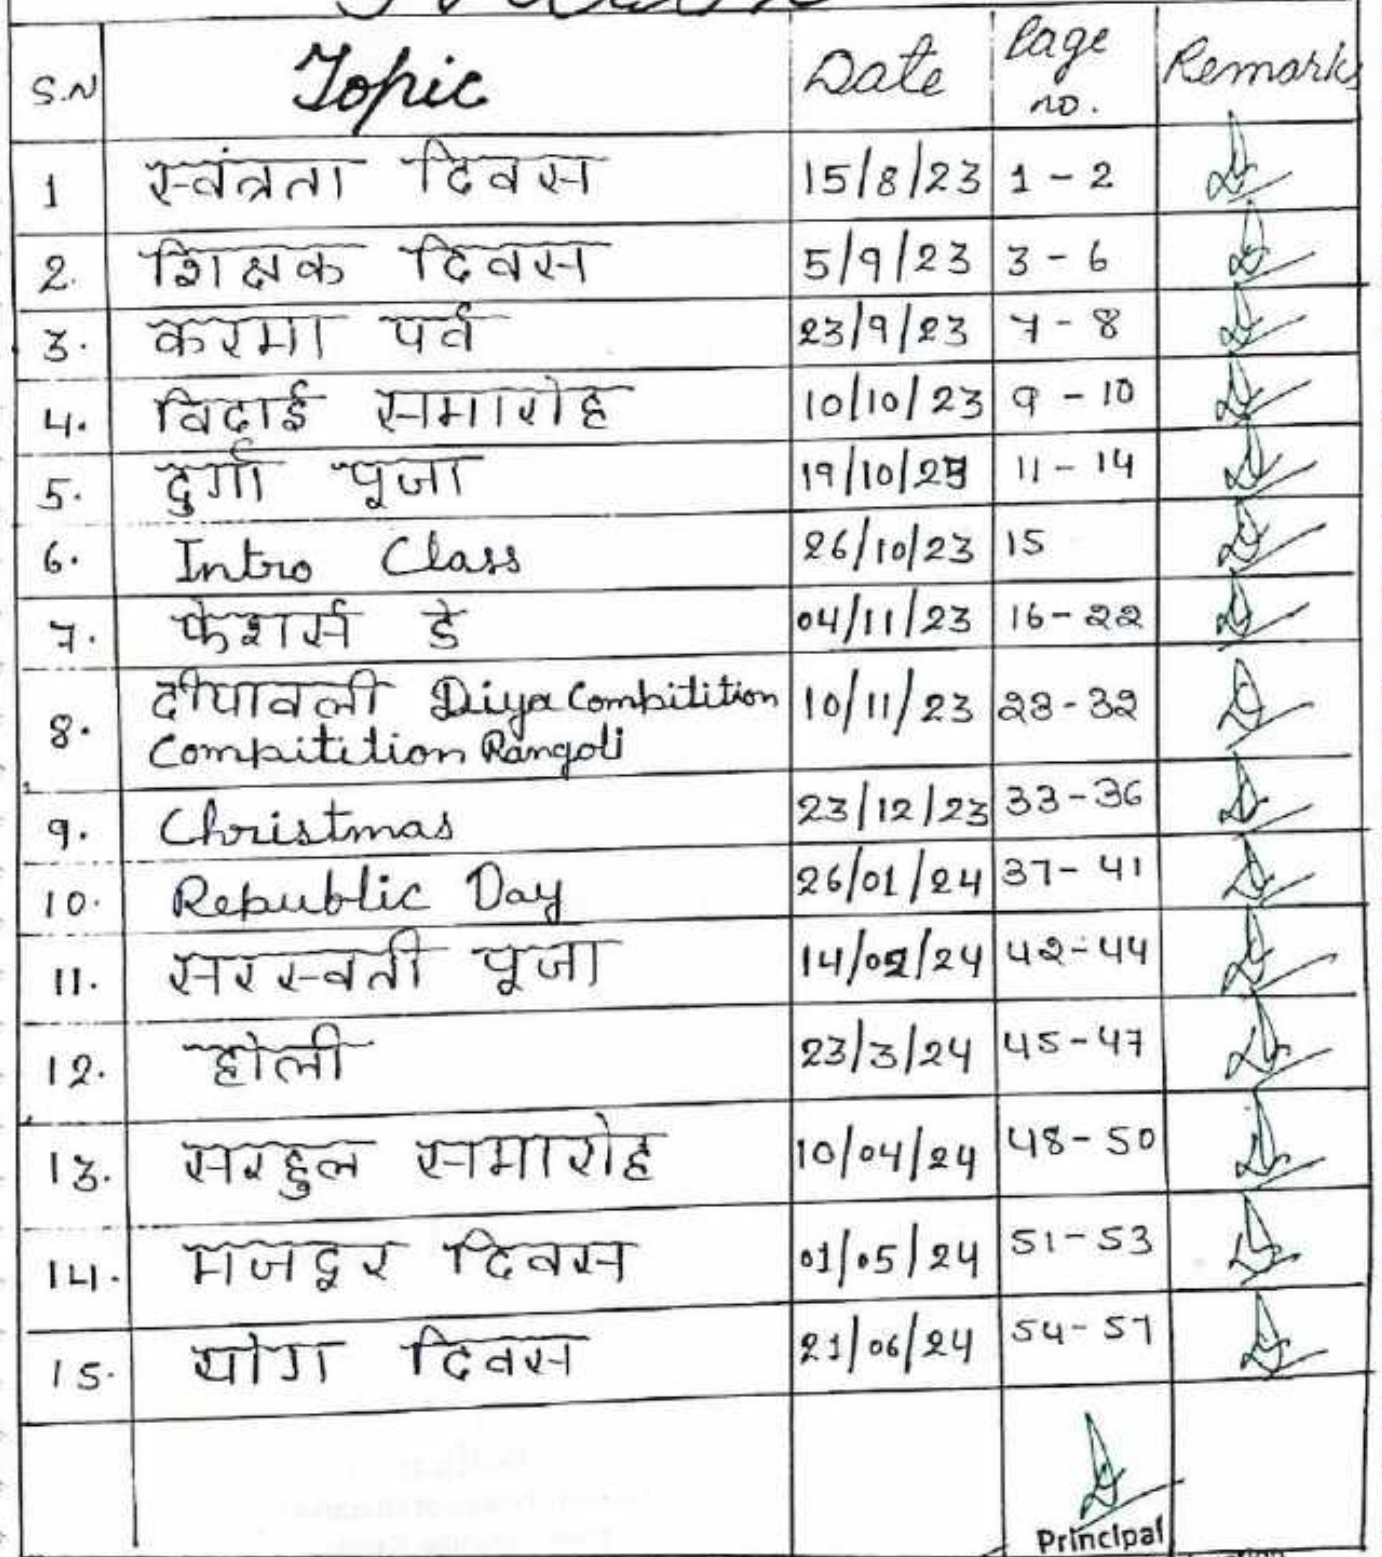 S.N Topic Date Page no. Remarks
1 स्वंत्रता दिवस 15/8/23 1 - 2
2. शिक्षक दिवस 5/9/23 3 - 6
3. करमा पर्व 23/9/23 7 - 8
4. विदाई समारोह 10/10/23 9 - 10
5. दुर्गा पूजा 19/10/23 11 - 14
6. Intro Class 26/10/23 15
7. फेशर्स डे 04/11/23 16-22
8. दीपावली Diya Compitition 10/11/23 23-32
Compitition Rangoli
9. Christmas 23/12/23 33-36
10. Republic Day 26/01/24 37-41
11. सरस्वती पूजा 14/02/24 42-44
12. होली 23/3/24 45-47
13. सरहुल समारोह 10/04/24 48-50
14. मजदूर दिवस 01/05/24 51-53
15. योग दिवस 21/06/24 54-57
Principal